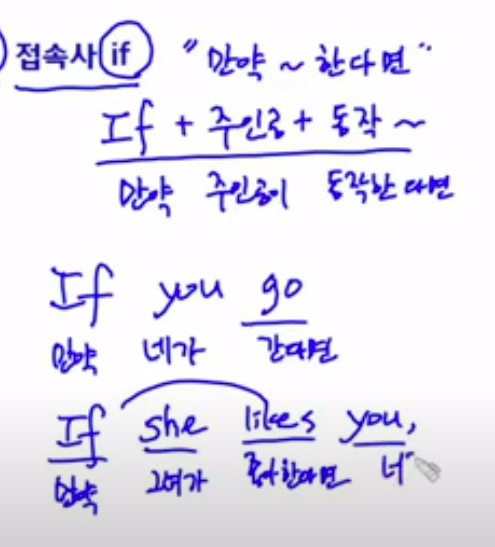 접속사 if "만약 ~ 한다면"
If + 주인공 + 동작 ~
만약 주인공이 동작한다면
If you go
만약 네가 간다면
If she likes you,
만약 그녀가 좋아한다면 너